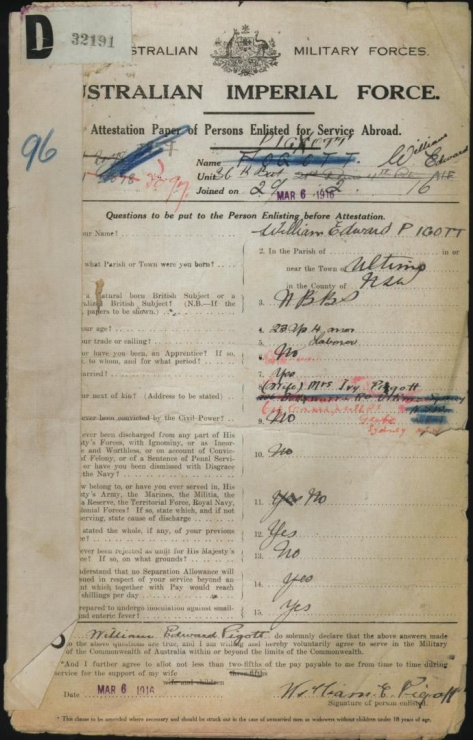 D
32191
AUSTRALIAN MILITARY FORCES.
AUSTRALIAN IMPERIAL FORCE.
Attestation Paper of Persons Enlisted for Service Abroad.
96
PIGOTT
Name PIGGOTT William Edward
Unit 36th Batt AIF
Joined on MAR 6 1916
Questions to be put to the Person Enlisting before Attestation.
our Name? William Edward PIGOTT
2. In the Parish of in or
what Parish or Town were you born? near the Town of Ultimo
in the County of NSW
's natural born British Subject or a
alized British Subject? (N.B.—If the
papers to be shown.) 3. NBBS
ur age? 4. 23 Yrs 4 mos
ur trade or calling? 5. Laborer
or have you been, an Apprentice? If so,
, to whom, and for what period? 6. No
arried? 7. Yes
ur next of kin? (Address to be stated) (Wife) Mrs Ivy Pigott
ever been convicted by the Civil Power? 9. No
ever been discharged from any part of His
ty's Forces, with Ignominy, or as Incor-
e and Worthless, or on account of Convic-
of Felony, or of a Sentence of Penal Servi-
or have you been dismissed with Disgrace
the Navy? 10. No
w belong to, or have you ever served in, His
ty's Army, the Marines, the Militia, the
a Reserve, the Territorial Force, Royal Navy,
olonial Forces? If so, state which, and if not
serving, state cause of discharge 11. Yes No
stated the whole, if any, of your previous
e? 12. Yes
ever been rejected as unfit for His Majesty's
e? If so, on what grounds? 13. No
nderstand that no Separation Allowance will
ued in respect of your service beyond an
nt which together with Pay would reach
shillings per day 14. Yes
repared to undergo inoculation against small-
nd enteric fever? 15. Yes
William Edward Pigott do solemnly declare that the above answers made
me to the above questions are true, and I am willing and hereby voluntarily agree to serve in the Military
of the Commonwealth of Australia within or beyond the limits of the Commonwealth.
*And I further agree to allot not less than two-fifths of the pay payable to me from time to time during
service for the support of my wife three-fifths
wife and children
Date MAR 6 1916 William E. Pigott
Signature of person enlisted.
* This clause to be amended where necessary and should be struck out in the case of unmarried men or widowers without children under 18 years of age.